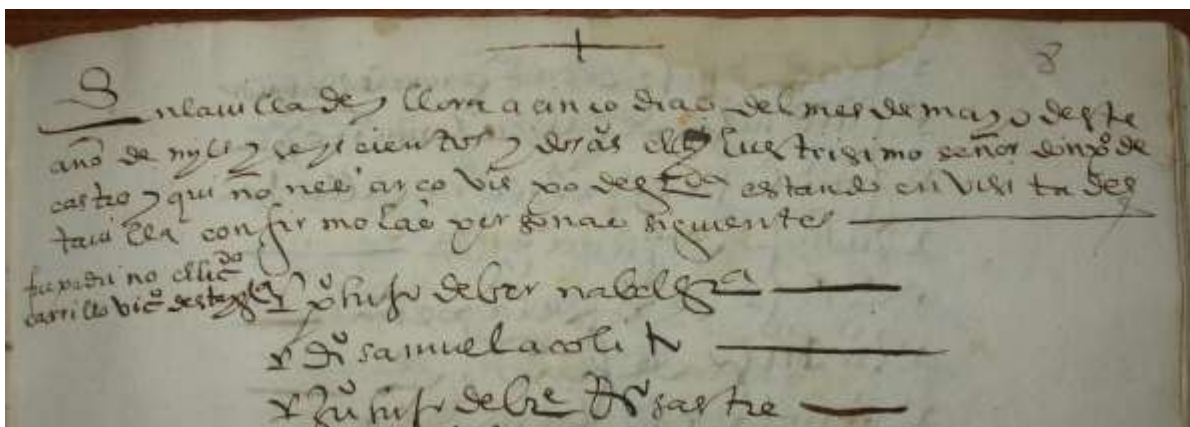 8
En la villa de yllora a cinco dias del mes de mayo deste
año de myll y seyscientos y dos as el yllustrisimo señor don po de
castro y quiñones arcobispo de gda estando en visita des
ta villa confirmo las personas siguientes
fue padrino el licdo
carrillo vico desta ygla
po hijo de bernabel gra
x di samuel acoli
x Ju hijo de bre sastre